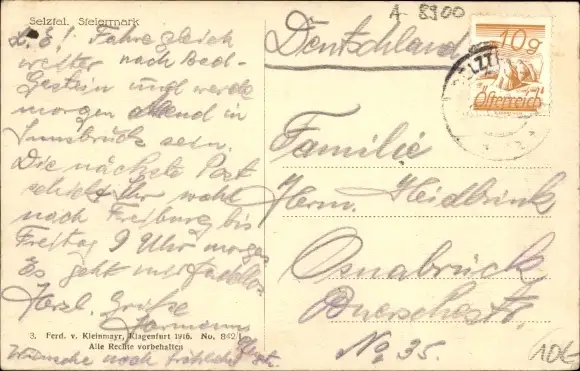 Selztal. Steiermark
A 8900
L. E! Fahre gleich
weiter nach Bad-
Gastein und werde
morgen Abend in
Innsbruck sein.
Die nächste Post
schickt Ihr wohl
nach Freiburg bis
Freitag 9 Uhr morgens
Es geht mir
Herzl. Grüße
Hermann
3. Ferd. v. Kleinmayr, Klagenfurt 1916. No. 842
Alle Rechte vorbehalten
Wünsche noch fröhliche
Deutschland
10g
Österreich
SELZT
Familie
Herm. Heidbrink
Osnabrück
Buerschestr.
No. 35.
10.-